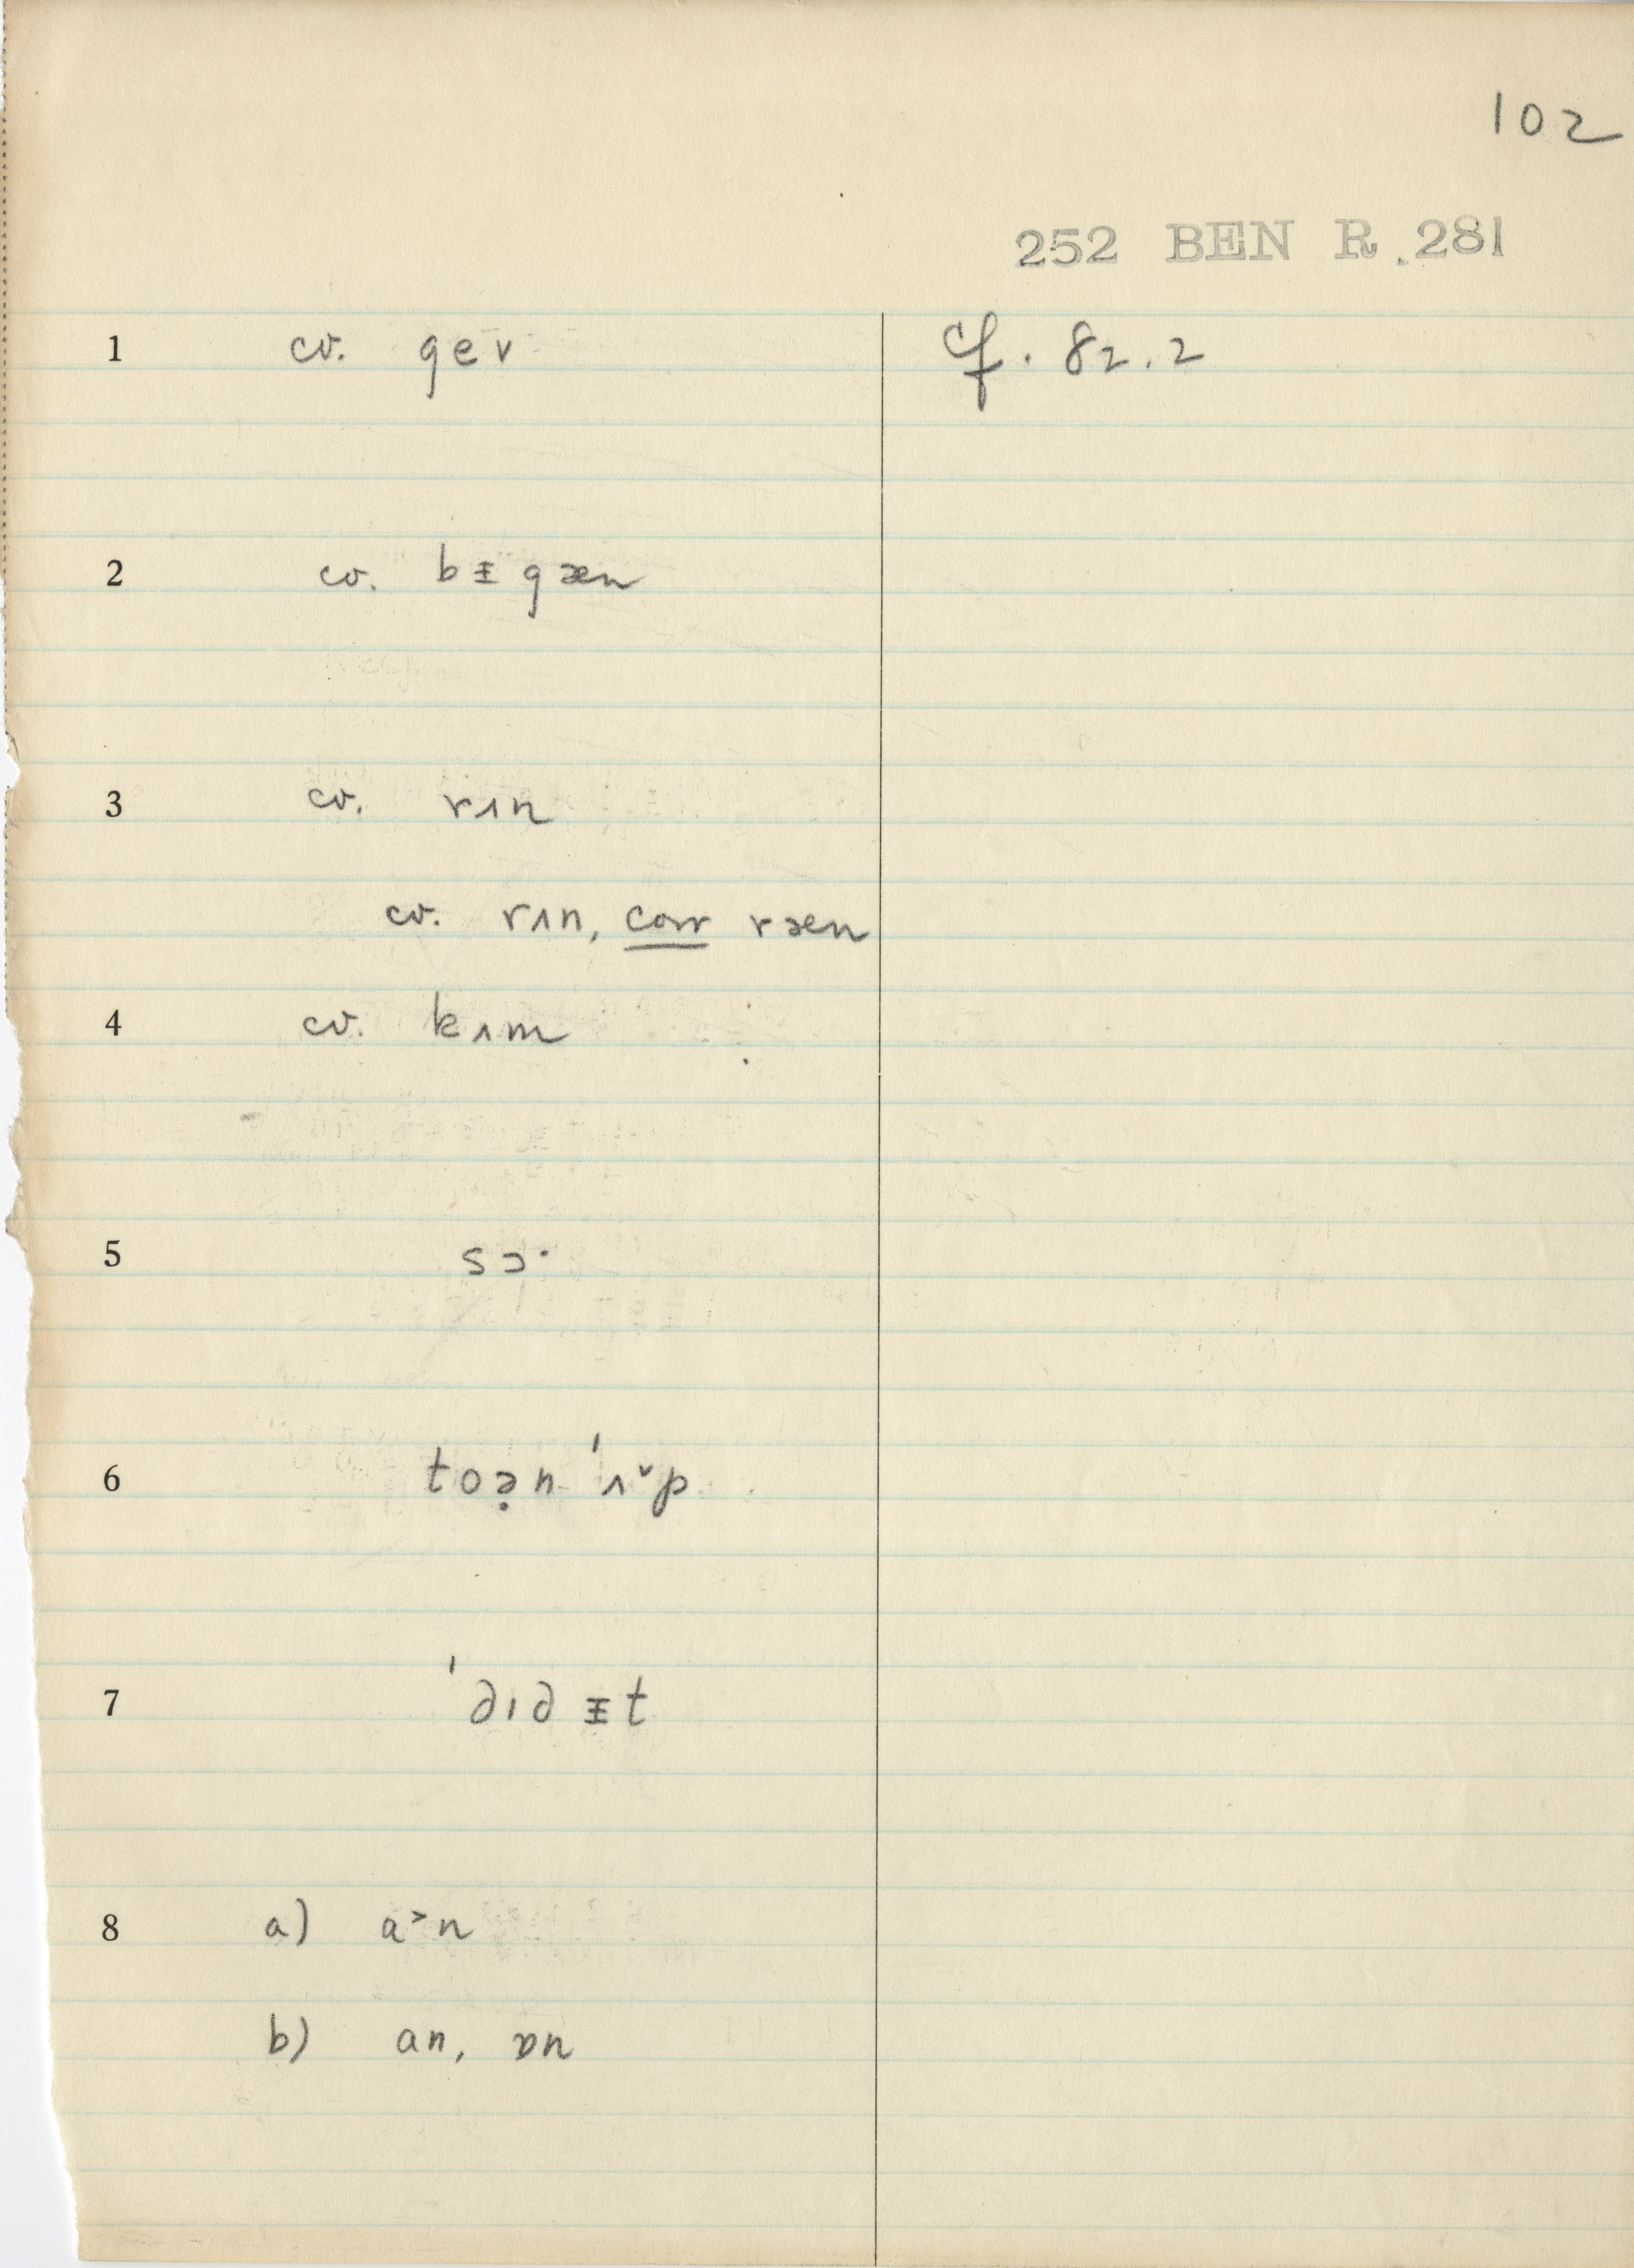 102
252 BEN R. 281
1 cv. gev cf. 82.2
2 cv. bᵻgæn
3 cv. rʌn
cv. rʌn, corr ræn
4 cv. kʌm
5 sɔ·
6 toə̣n ˈʌ˅p
7 ˈdɪdᵻt
8 a) a˃n
b) an, ɒn